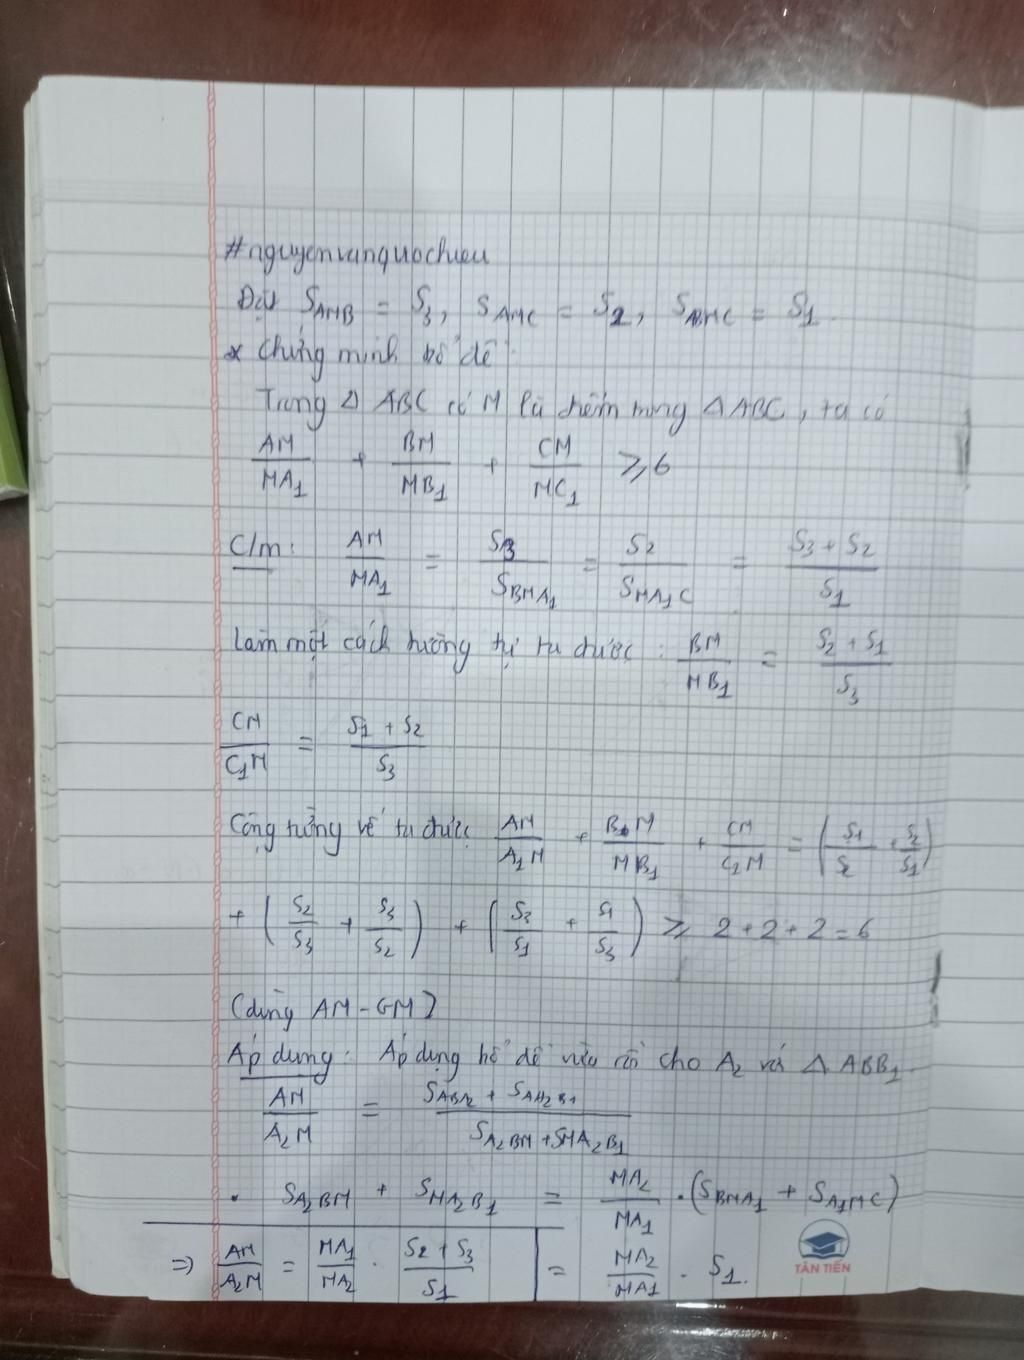 #nguyenvanquochieu
Đặt S_AMB = S_3, S_AMC = S_2, S_BMC = S_1.
* Chứng minh bổ đề:
Trong Δ ABC có M là điểm trong Δ ABC, ta có
AM/MA_1 + BM/MB_1 + CM/MC_1 ⩾ 6
C/m: AM/MA_1 = S_3/S_BMA_1 = S_2/S_MA_1C = (S_3 + S_2)/S_1
Làm một cách tương tự ta được: BM/MB_1 = (S_2 + S_1)/S_3
CM/C_1M = (S_1 + S_2)/S_3
Cộng từng vế ta được AM/A_1M + BM/MB_1 + CM/C_1M = (S_1/S_2 + S_2/S_1)
+ (S_2/S_3 + S_3/S_2) + (S_3/S_1 + S_1/S_3) ⩾ 2 + 2 + 2 = 6
(dùng AM - GM)
Áp dụng: Áp dụng bổ đề vừa rồi cho A_2 và Δ ABB_1.
AM/A_2M = (S_ABA_2 + S_AA_2B_1)/(S_A_2BM + S_MA_2B_1)
• S_A_2BM + S_MA_2B_1 = MA_2/MA_1 . (S_BMA_1 + S_A_1MC)
⇒ AM/A_2M = MA_1/MA_2 . (S_2 + S_3)/S_1 | = MA_2/MA_1 . S_1.
TÂN TIẾN